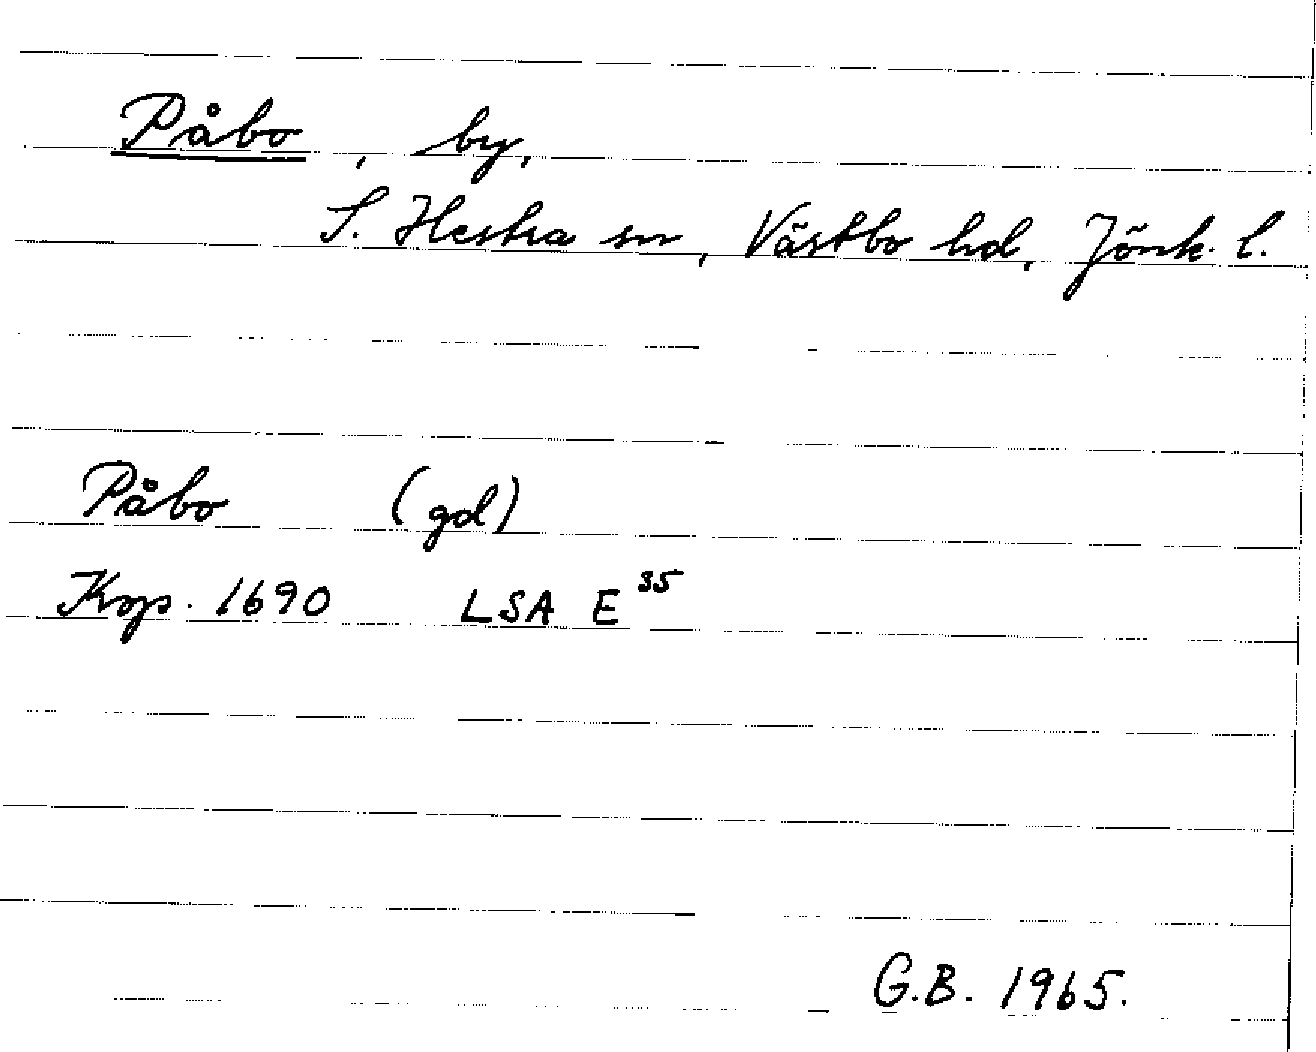 Påbo, by,
S. Hestra sn, Västbo hd, Jönk. l.
Påbo (gd)
Ksp. 1690 LSA E 35
G.B. 1965.